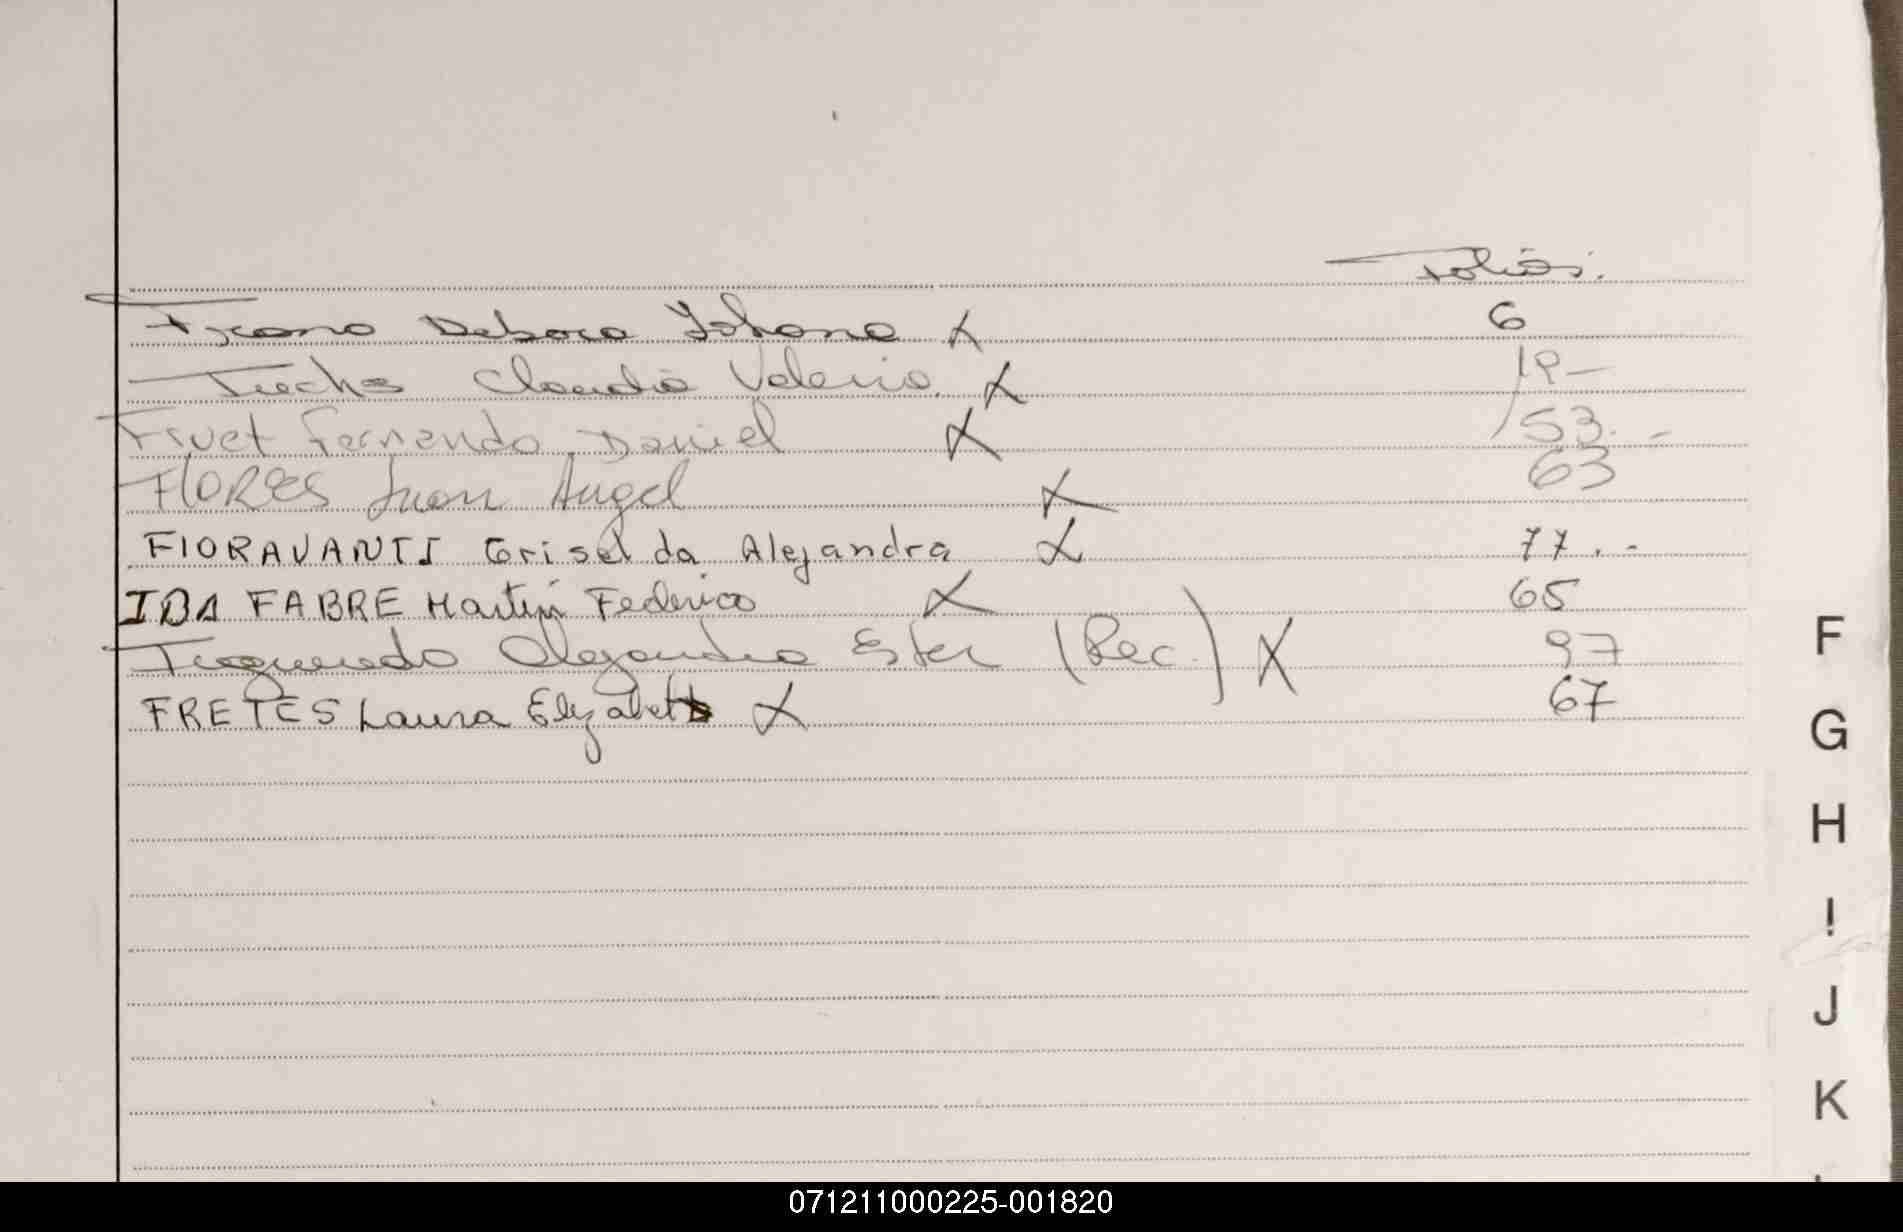 Folios.
Franco Debora Johana X 6
Claudia Valeria. X 19-
Fivet Fernando Daniel X 53. -
FLORES Juan Angel X 63
FIORAVANTI Griselda Alejandra X 77. -
IDA FABRE Martín Federico X 65
Alejandra Ester (Rec.) X 97
FRETES Laura Elizabeth X 67
F
G
H
I
J
K
071211000225-001820